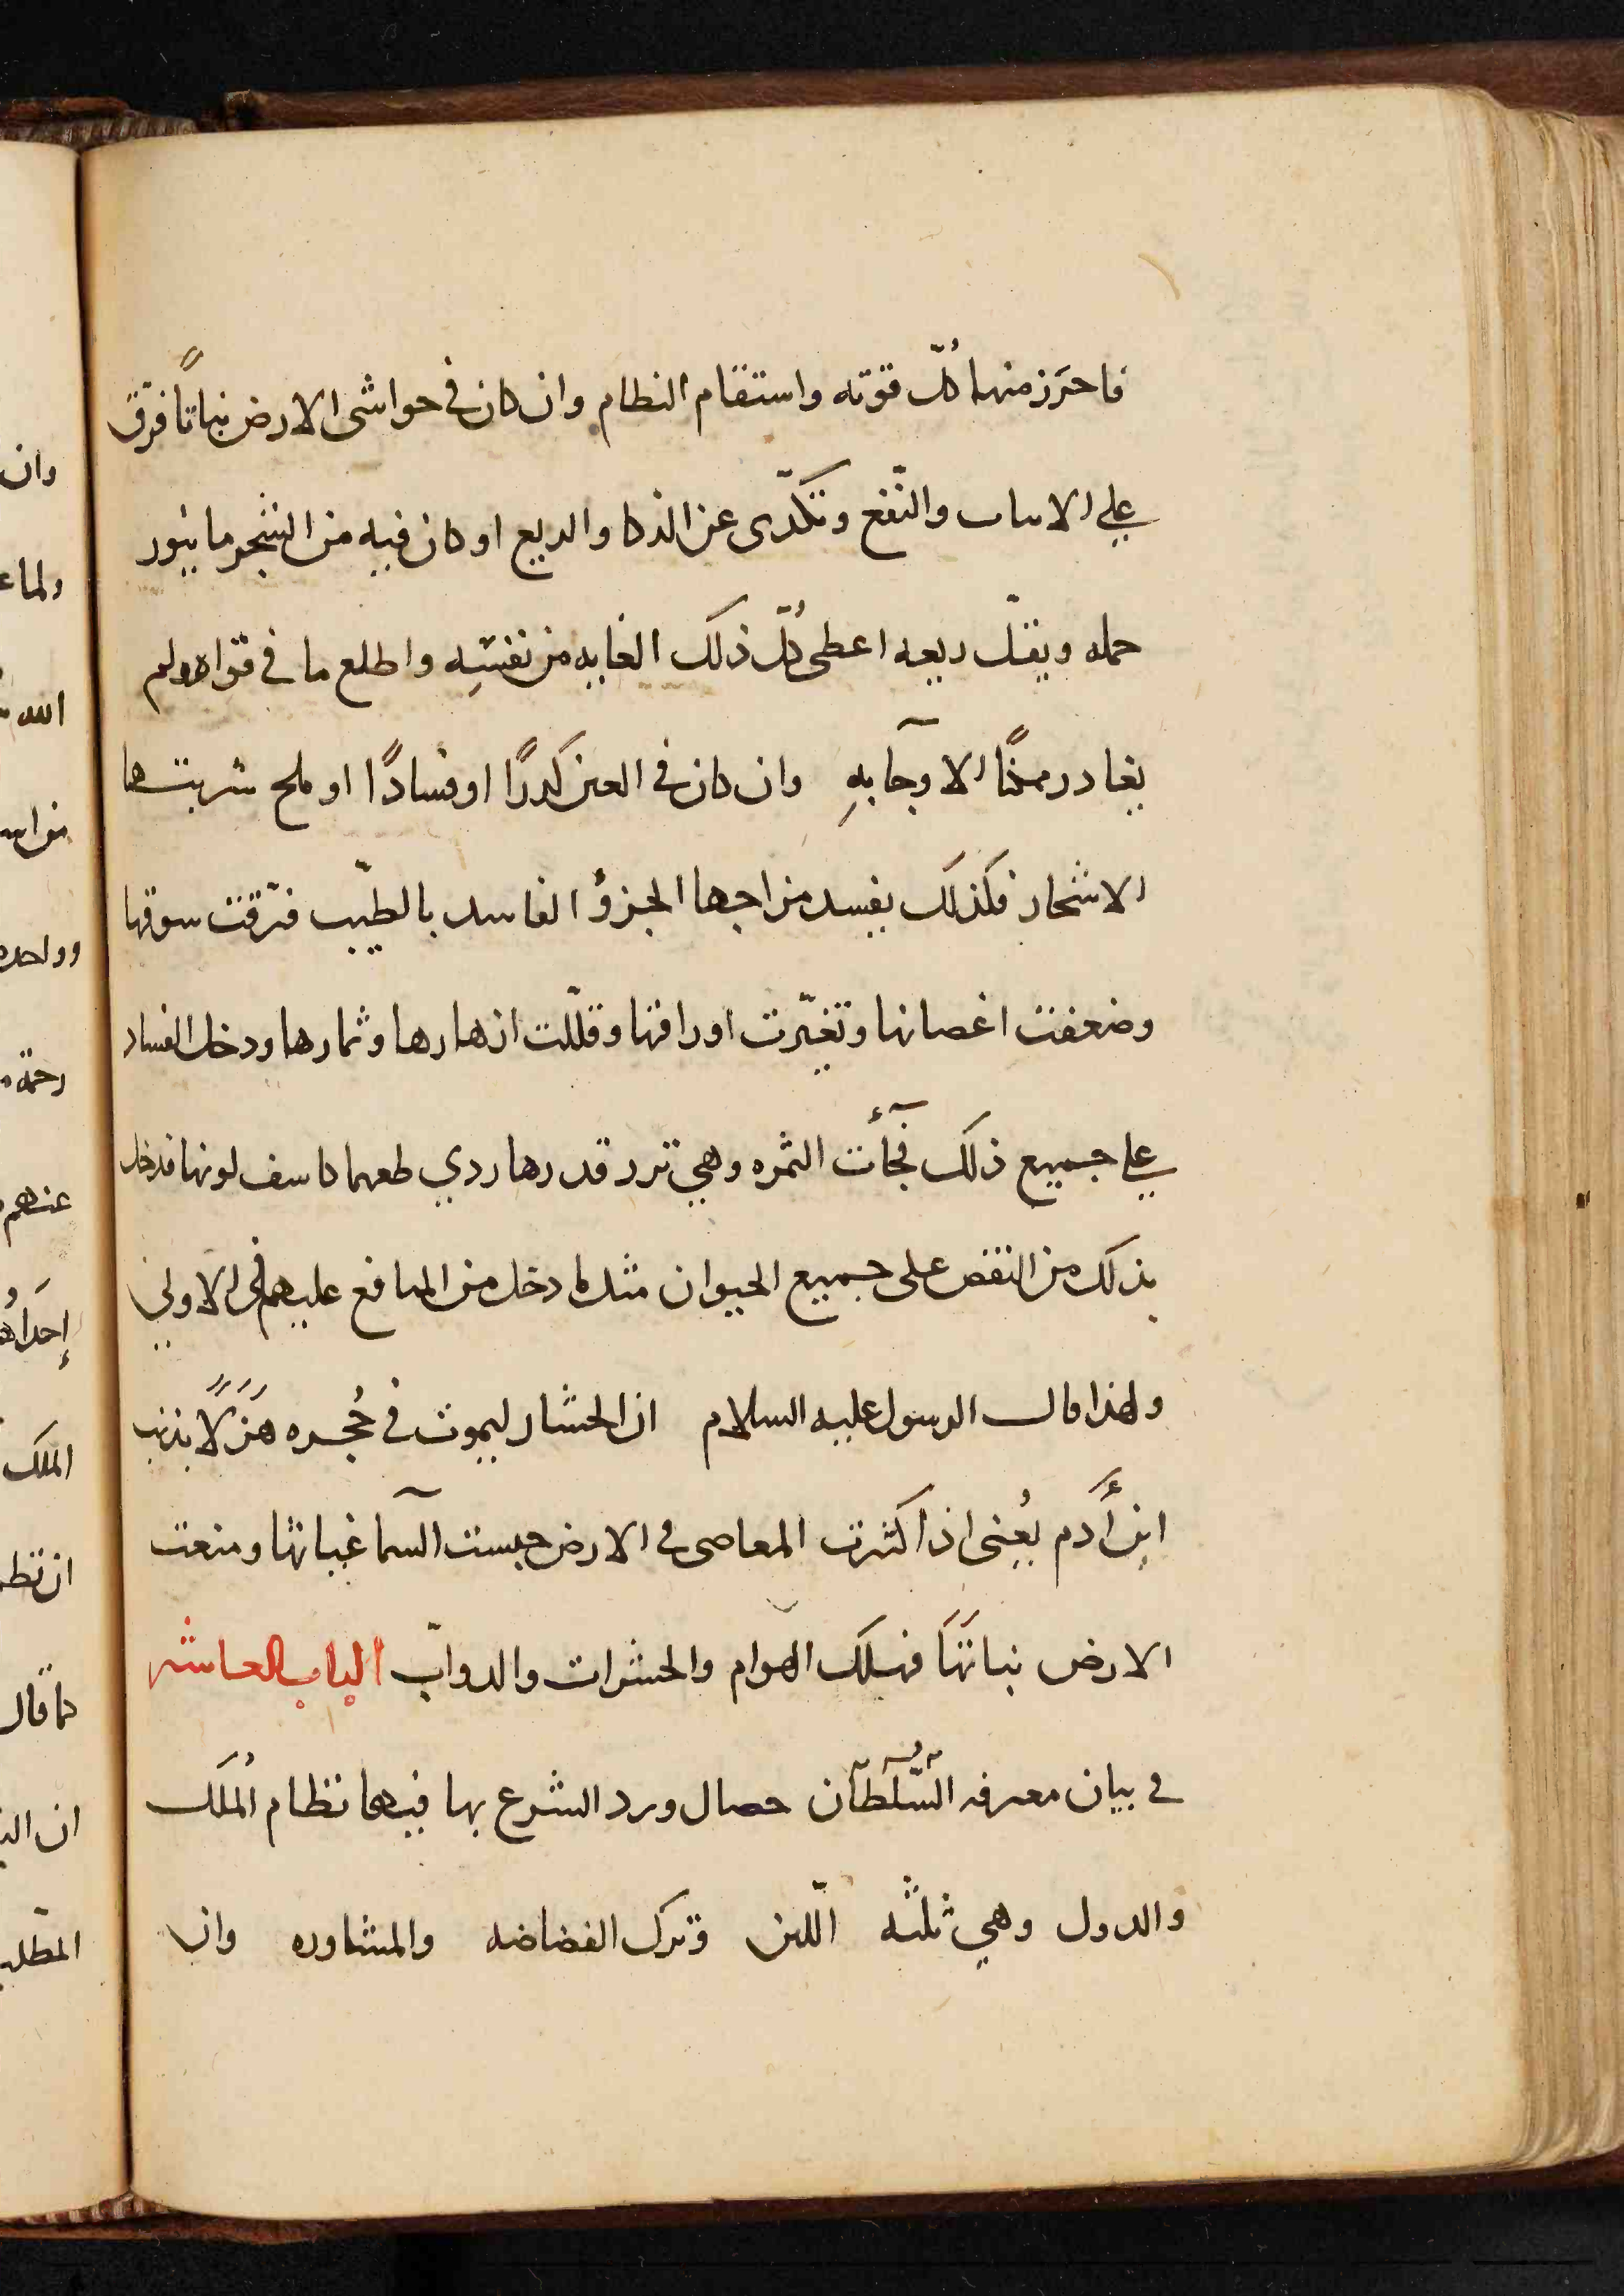 فاحرَز منها كُلّ قوته واستقام النظام وان كان فى حواشى الارض نباتًا فرق
على الانبات والنّفع وتكدّى عن الذكا والريع او كان فيه من الشجر ما يبور
حمله ويقلّ ريعه اعطى كُلّ ذلك الغايه من نفسِه واطلع ما فى قواه ولم
يغادر ممكنًا الا وجآ بهِ وان كان فى العين كَدرًا او فسادًا او ملح شربتها
الاشجار فكذلك يفسد مزاجها الجزؤ الفاسد بالطيّب فترقّت سوقها
وضعفت اغصانها وتغيّرت اوراقها وقللّت ازهارها وثمارها ودخل الفساد
على جميع ذلك فجآءت الثمره وهي نزر قدرها ردي طعمها كاسف لونها فدخل
بذلك من النقص على جميع الحيوان مثل ما دخل من المنافع عليهم فى الاولى
ولهذا قال الرسول عليه السلام ان الحشار ليموت فى حُجره هَزَلًا بذنب
ابنِ أَدم يُعنى اذا كثرت المعاصى فى الارض حبست السّمآ غياثها ومنعت
الارض نباتَهَا فهلك الهوام والحشرات والدوابّ الباب العاشر
فى بيان معرفه السُّلطآن خصال ورد الشرع بها فيها نظام المُلك
والدول وهي ثلثه اللّين وترك الفضاضه والمشاوره وان
وان
الله
وواحده
رحمة
عنهم
الملك
كما قال